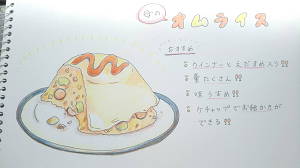 母の
オムライス
おすすめ
ウインナーとえだまめ入り!!
量たくさん!!
味うすめ!!
ケチャップでお絵かきが
できる!!